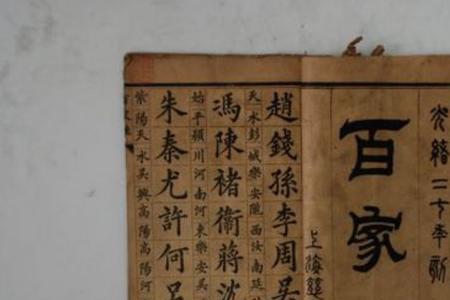 光緒二十年
百家
上海
趙錢孫李周吳
天水彭城樂安隴西汝南延
馮陳褚衛蔣沈
始平潁川河南河東樂安吳
朱秦尤許何呂
紫陽天水吳興高陽高陽河